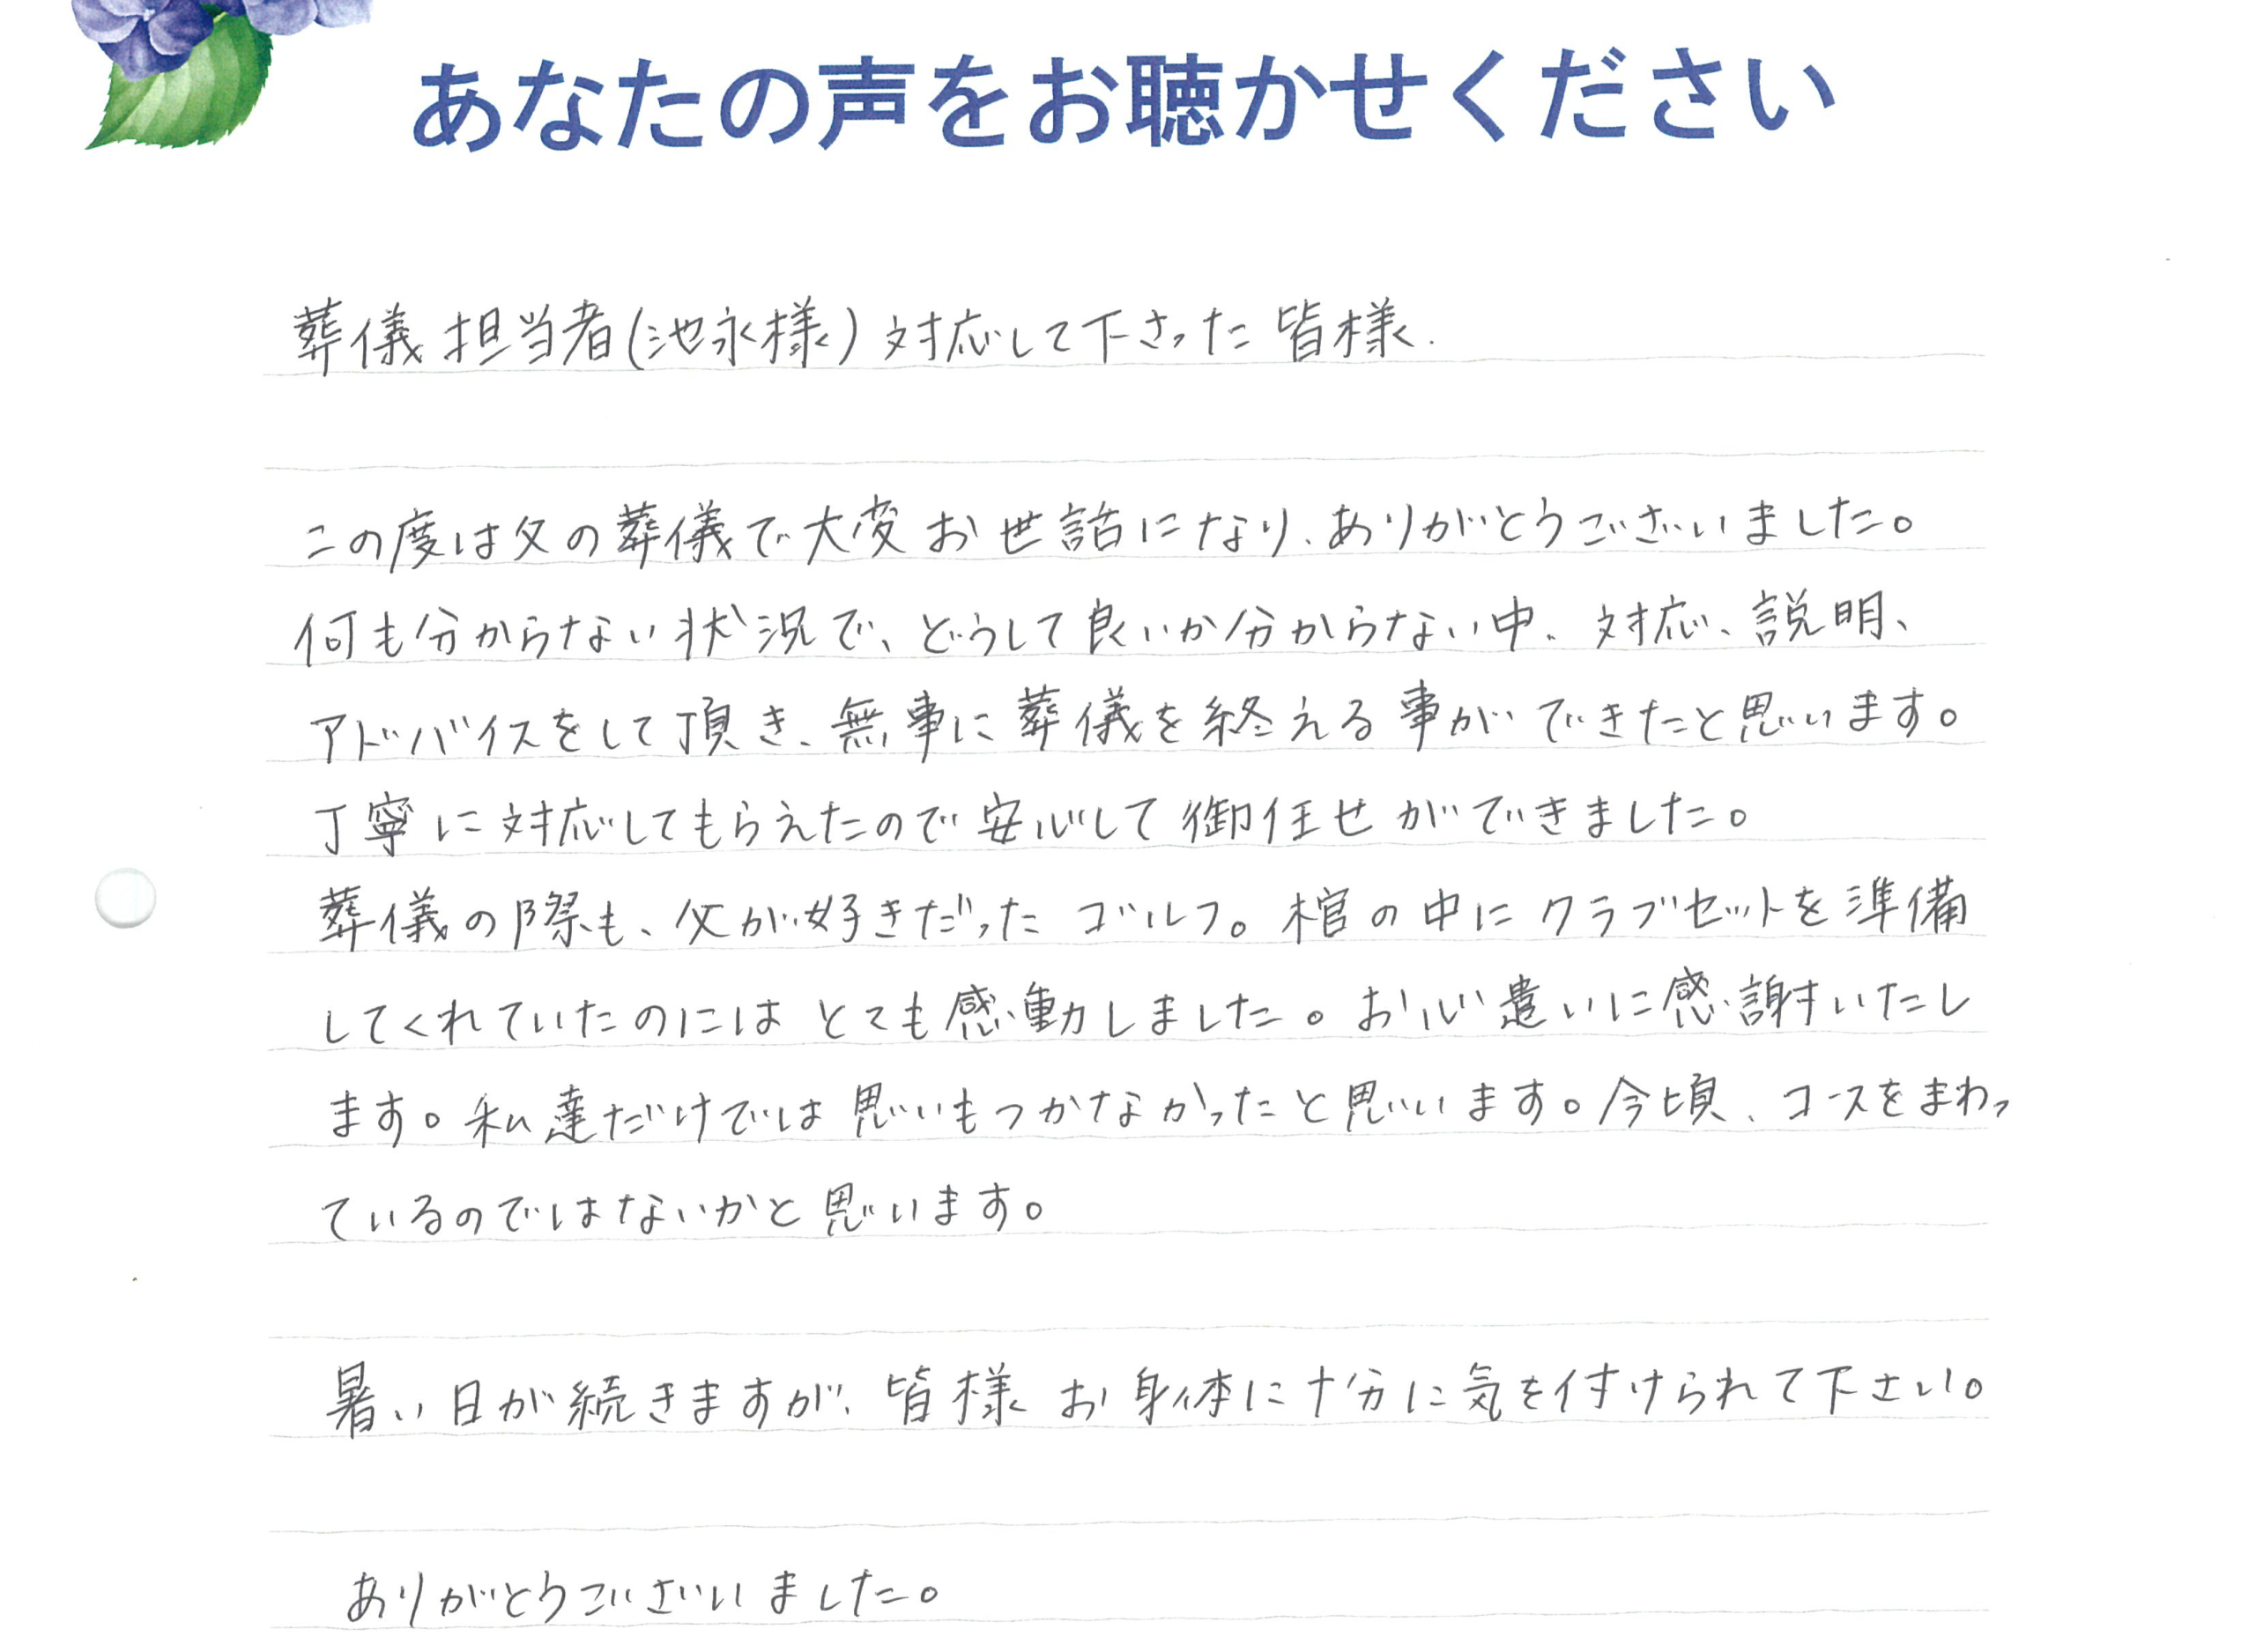 あなたの声をお聴かせください
葬儀担当者(池永様)対応して下さった皆様.
この度は父の葬儀で大変お世話になり、ありがとうございました。
何も分からない状況で、どうして良いか分からない中、対応、説明、
アドバイスをして頂き、無事に葬儀を終える事ができたと思います。
丁寧に対応してもらえたので安心して御任せができました。
葬儀の際も、父が好きだったゴルフ。棺の中にクラブセットを準備
してくれていたのにはとても感動しました。お心遣いに感謝いたし
ます。私達だけでは思いもつかなかったと思います。今頃、コースをまわっ
ているのではないかと思います。
暑い日が続きますが、皆様お身体に十分に気を付けられて下さい。
ありがとうございました。